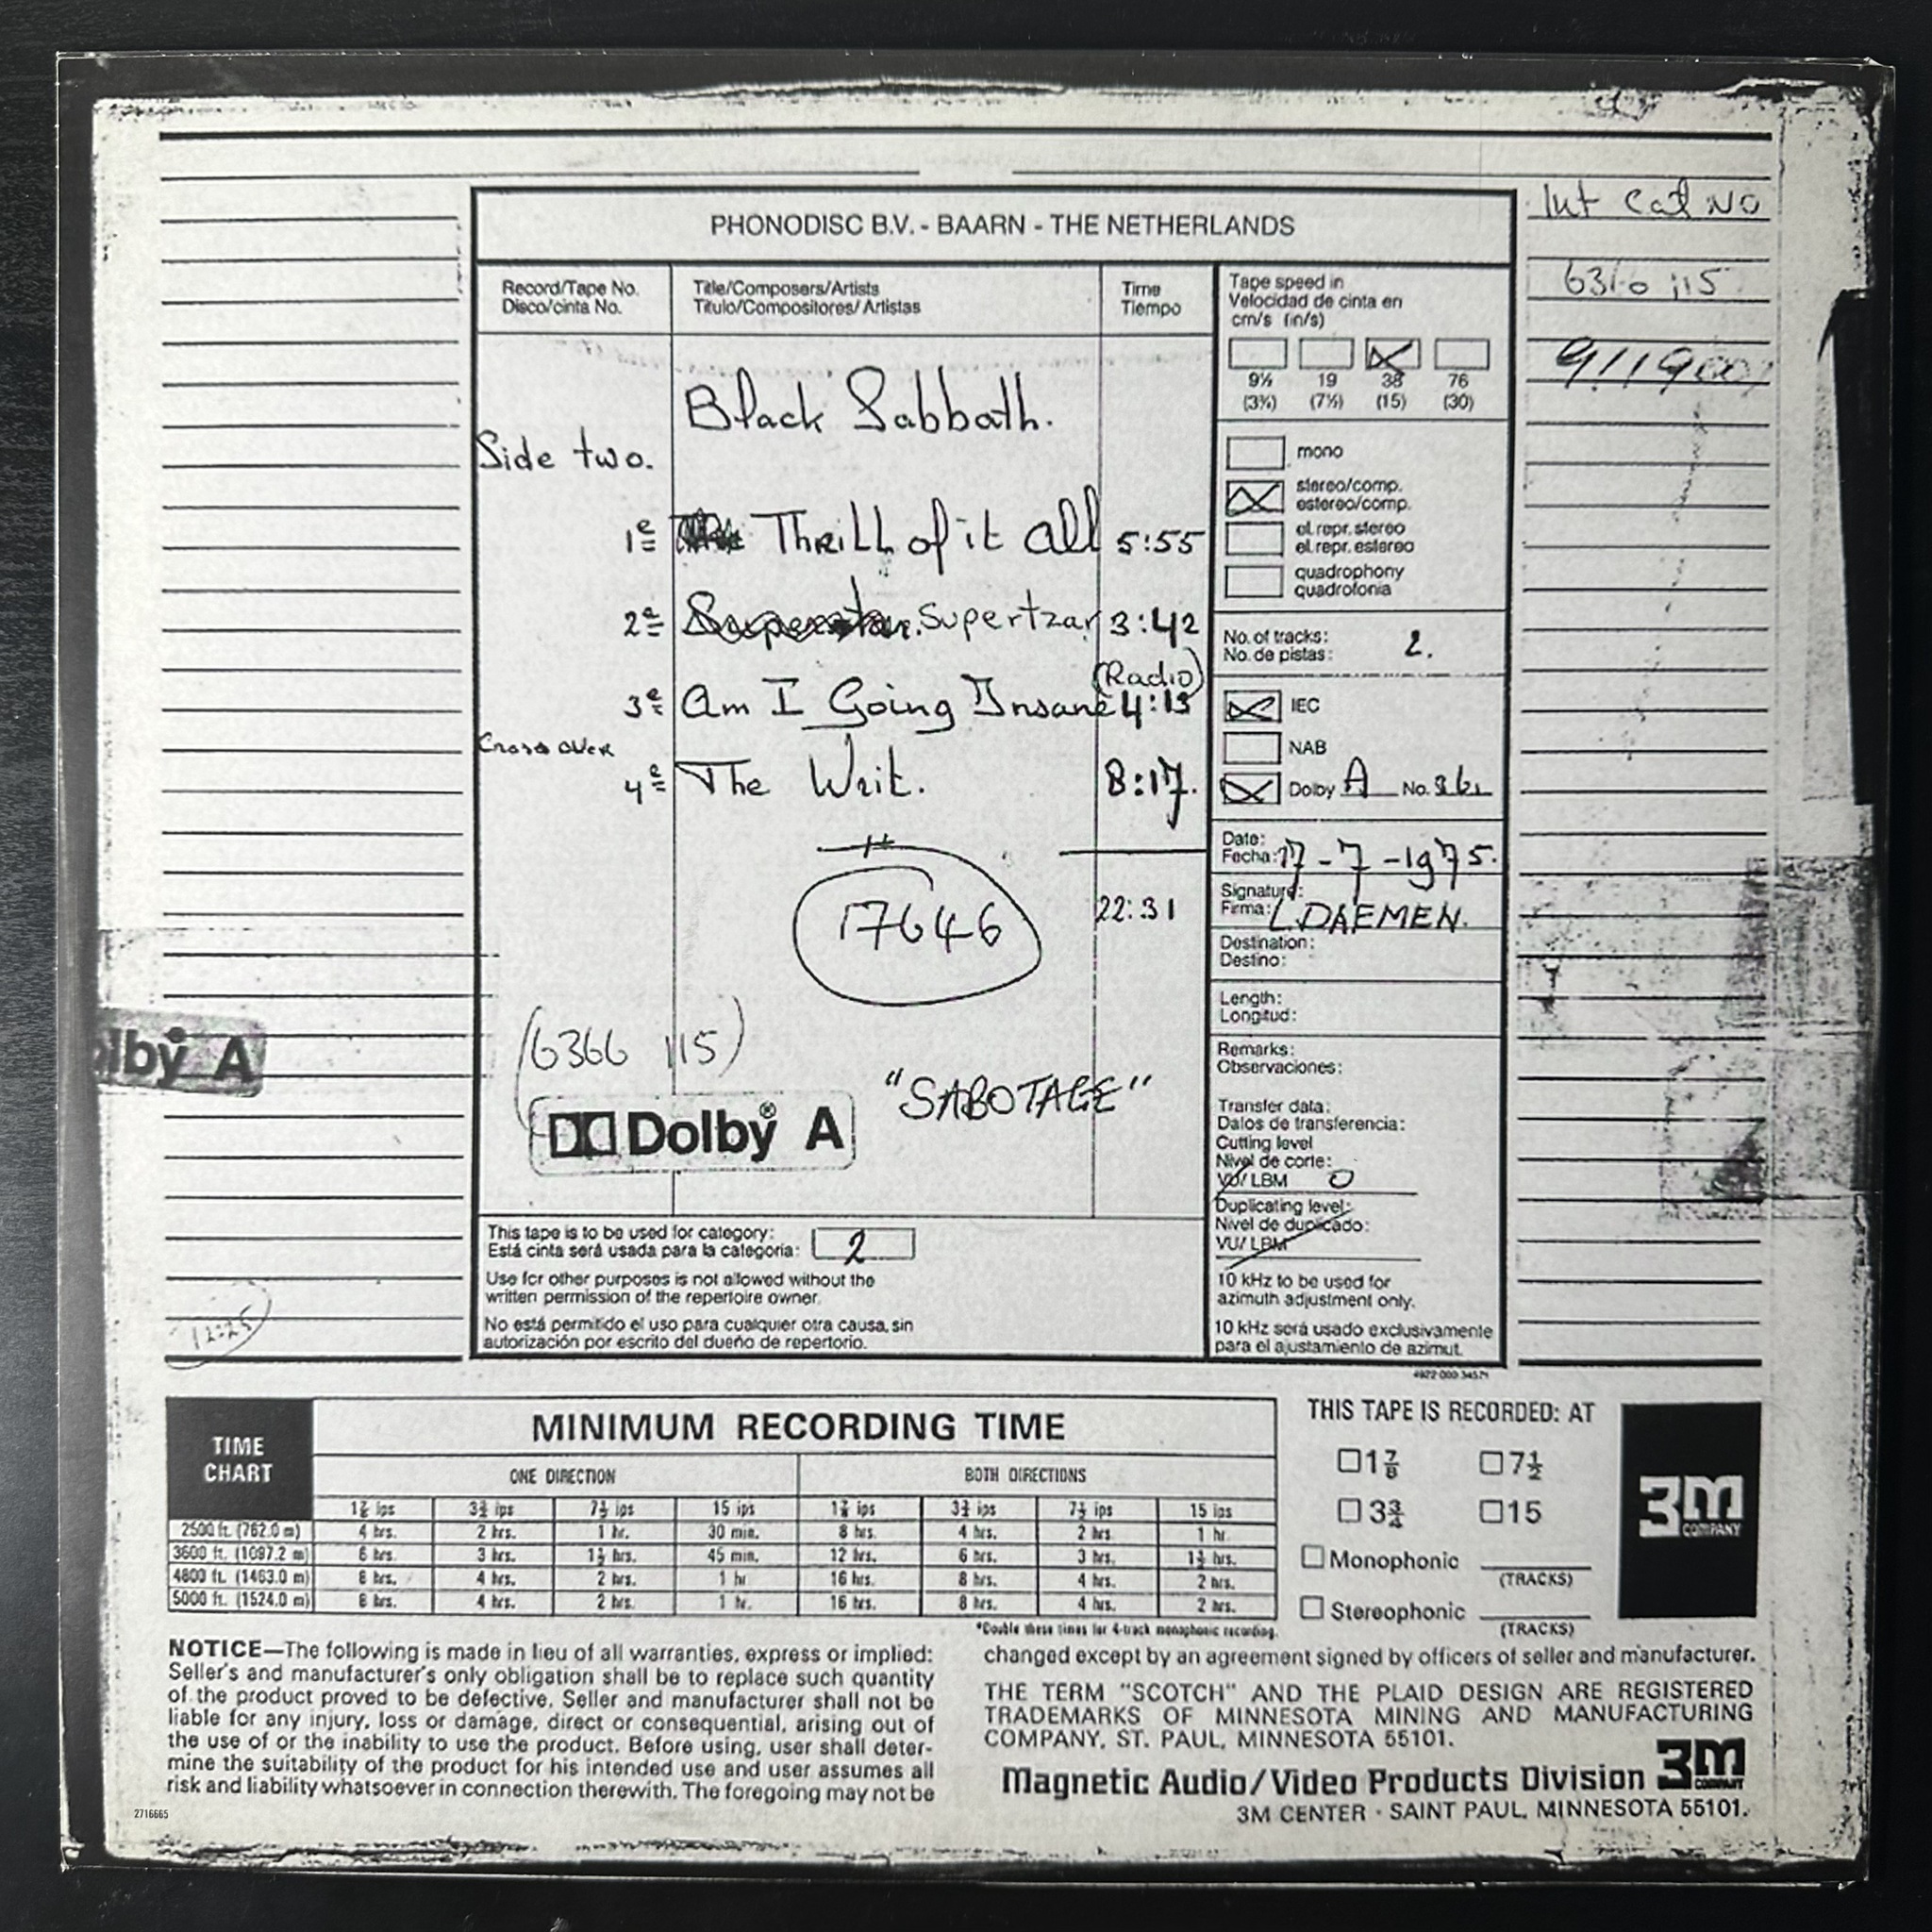 PHONODISC B.V. - BAARN - THE NETHERLANDS
Record/Tape No.
Disco/cinta No.
Title/Composers/Artists
Titulo/Compositores/Artistas
Time
Tiempo
Black Sabbath.
Side two.
1e Thrill of it all 5:55
2e Superstar. Supertzar 3:42
(Radio)
3e Am I Going Insane 4:13
Cross over
4e The Writ. 8:17.
22:31
17646
(6366 115)
"SABOTAGE"
Dolby® A
lby A
This tape is to be used for category:
Está cinta será usada para la categoria: 2
Use for other purposes is not allowed without the
written permission of the repertoire owner.
No está permitido el uso para cualquier otra causa, sin
autorización por escrito del dueño de repertorio.
12:25
Tape speed in
Velocidad de cinta en
cm/s (in/s)
9½ 19 38 76
(3¾) (7½) (15) (30)
mono
stereo/comp.
estereo/comp.
el. repr. stereo
el. repr. estereo
quadrophony
quadrofonia
No. of tracks:
No. de pistas: 2.
IEC
NAB
Dolby A No. 361
Date:
Fecha: 17-7-1975.
Signature:
Firma: L. DAEMEN.
Destination:
Destino:
Length:
Longitud:
Remarks:
Observaciones:
Transfer data:
Datos de transferencia:
Cutting level
Nivel de corte:
VU/LBM 0
Duplicating level:
Nivel de duplicado:
VU/LBM
10 kHz to be used for
azimuth adjustment only.
10 kHz será usado exclusivamente
para el ajustamiento de azimut.
4922 000 34571
Int Cat NO
6310 115
TIME
CHART
MINIMUM RECORDING TIME
ONE DIRECTION BOTH DIRECTIONS
1⅞ ips 3¾ ips 7½ ips 15 ips 1⅞ ips 3¾ ips 7½ ips 15 ips
2500 ft. (762.0 m) 4 hrs. 2 hrs. 1 hr. 30 min. 8 hrs. 4 hrs. 2 hrs. 1 hr.
3600 ft. (1097.2 m) 6 hrs. 3 hrs. 1½ hrs. 45 min. 12 hrs. 6 hrs. 3 hrs. 1½ hrs.
4800 ft. (1463.0 m) 8 hrs. 4 hrs. 2 hrs. 1 hr 16 hrs. 8 hrs. 4 hrs. 2 hrs.
5000 ft. (1524.0 m) 8 hrs. 4 hrs. 2 hrs. 1 hr. 16 hrs. 8 hrs. 4 hrs. 2 hrs.
*Double these times for 4-track monophonic recording.
THIS TAPE IS RECORDED: AT
1⅞ 7½
3¾ 15
Monophonic
(TRACKS)
Stereophonic
(TRACKS)
3M
COMPANY
NOTICE—The following is made in lieu of all warranties, express or implied:
Seller's and manufacturer's only obligation shall be to replace such quantity
of the product proved to be defective. Seller and manufacturer shall not be
liable for any injury, loss or damage, direct or consequential, arising out of
the use of or the inability to use the product. Before using, user shall deter-
mine the suitability of the product for his intended use and user assumes all
risk and liability whatsoever in connection therewith. The foregoing may not be
changed except by an agreement signed by officers of seller and manufacturer.
THE TERM "SCOTCH" AND THE PLAID DESIGN ARE REGISTERED
TRADEMARKS OF MINNESOTA MINING AND MANUFACTURING
COMPANY, ST. PAUL, MINNESOTA 55101.
Magnetic Audio/Video Products Division 3M COMPANY
3M CENTER · SAINT PAUL, MINNESOTA 55101.
2716665